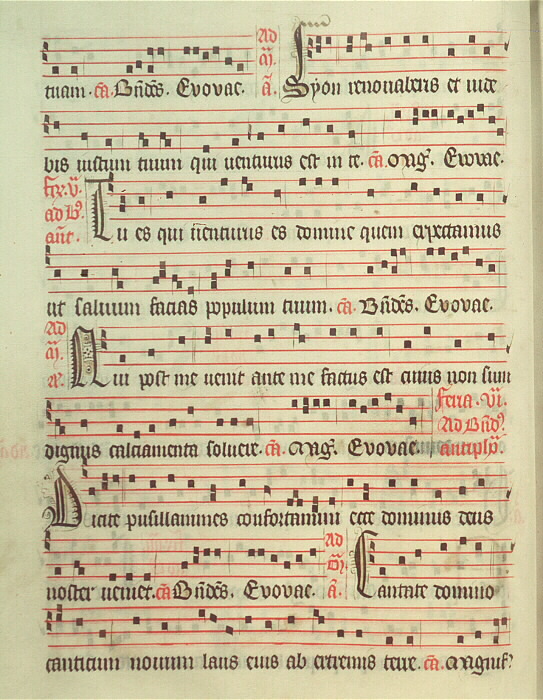 tuam. ca. Bndes. Evovae. Ad m. a. Syon renovaberis et vide
bis iustum tuum qui venturus est in te. ca. Mag. Evovae.
fer. v. ad B. ant. Tu es qui venturus es domine quem expectamus
ut salvum facias populum tuum. ca. Bndes. Evovae.
Ad m. Qui post me venit ante me factus est cuius non sum
dignus calciamenta solvere. ca. Mag. Evovae. feria. vi. Ad Bnds antiph.
Dicite pusillanimes confortamini ecce dominus deus
noster veniet. ca Bndes. Evovae. ad m. a. Cantate domino
canticum novum laus eius ab extremis terre. ca. Magnif